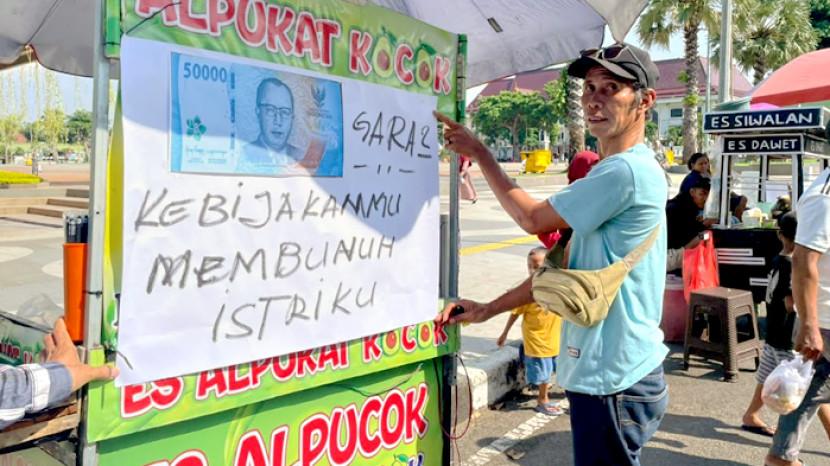 ALPUKAT KOCOK
50000
GARA2
KEBIJAKANMU
MEMBUNUH
ISTRIKU
ES ALPUKAT KOCOK
ES ALPUCOK
ES SIWALAN
ES DAWET